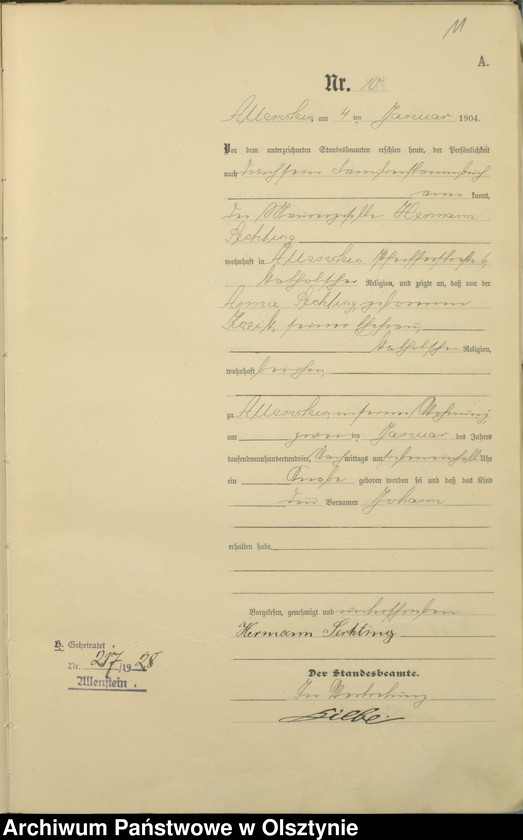 11
A.
Nr. 10
Allenstein, am 4 ten Januar 1904.
Vor dem unterzeichneten Standesbeamten erschien heute, der Persönlichkeit
nach durch sein Familienstammbuch
aner kannt,
der Maurergeselle Hermann
wohnhaft in Allenstein
katholischer Religion, und zeigte an, daß von der
geborenen
seiner Ehefrau,
katholischer Religion,
wohnhaft bei ihm,
zu Allenstein in seiner Wohnung,
am zwei ten Januar des Jahres
tausendneunhundertundvier, Nachmittags um siebeneinhalb Uhr
ein Knabe geboren worden sei und daß das Kind
den Vornamen Johann
erhalten habe.
Vorgelesen, genehmigt und unterschrieben
Hermann
H. Geheiratet
Nr. 217/1928
Allenstein.
Der Standesbeamte.
In Vertretung
Archiwum Państwowe w Olsztynie